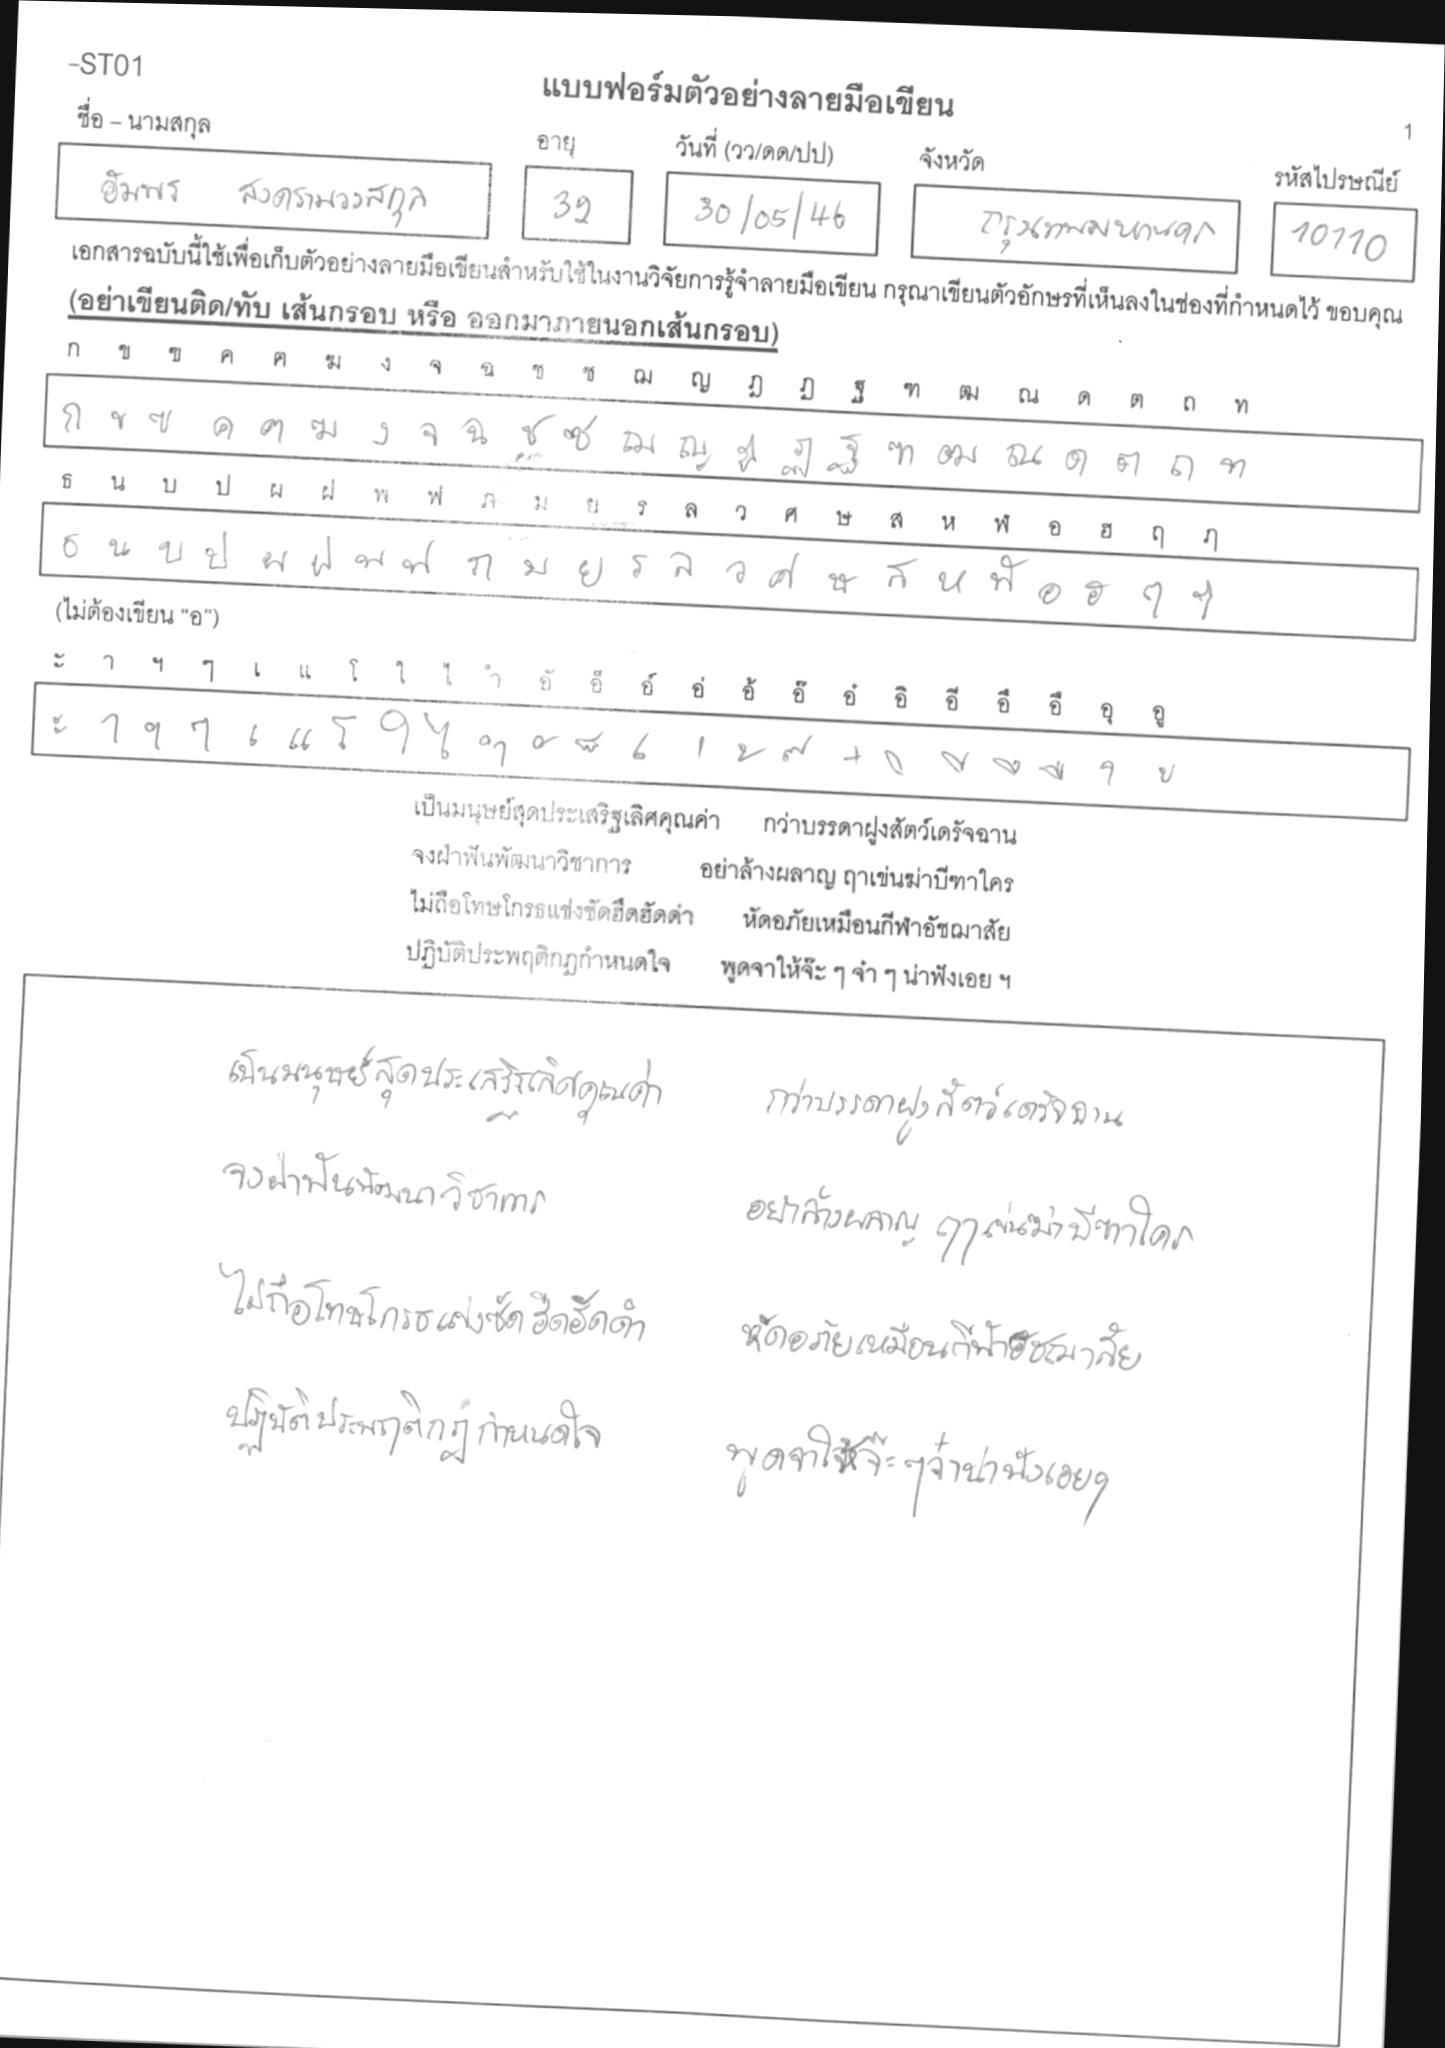 -ST01
แบบฟอร์มตัวอย่างลายมือเขียน
1
ชื่อ – นามสกุล อายุ วันที่ (วว/ดด/ปป) จังหวัด รหัสไปรษณีย์
อัมพร สงครามวงสกุล 32 30/05/46 กรุงเทพมหานคร 10110
เอกสารฉบับนี้ใช้เพื่อเก็บตัวอย่างลายมือเขียนสำหรับใช้ในงานวิจัยการรู้จำลายมือเขียน กรุณาเขียนตัวอักษรที่เห็นลงในช่องที่กำหนดไว้ ขอบคุณ
(อย่าเขียนติด/ทับ เส้นกรอบ หรือ ออกมาภายนอกเส้นกรอบ)
ก ข ฃ ค ฅ ฆ ง จ ฉ ช ซ ฌ ญ ฎ ฏ ฐ ฑ ฒ ณ ด ต ถ ท
ก ข ฃ ค ฅ ฆ ง จ ฉ ช ซ ฌ ญ ฎ ฏ ฐ ฑ ฒ ณ ด ต ถ ท
ธ น บ ป ผ ฝ พ ฟ ภ ม ย ร ล ว ศ ษ ส ห ฬ อ ฮ ฤ ฦ
ธ น บ ป ผ ฝ พ ฟ ภ ม ย ร ล ว ศ ษ ส ห ฬ อ ฮ ฤ ฦ
(ไม่ต้องเขียน "อ")
ะ า ฯ ๆ เ แ โ ใ ไ ำ อั อ็ อ์ อ่ อ้ อ๊ อ๋ อิ อี อึ อื อุ อู
ะ า ฯ ๆ เ แ โ ใ ไ ำ ั ็ ์ ่ ้ ๊ ๋ ิ ี ึ ื ุ ู
เป็นมนุษย์สุดประเสริฐเลิศคุณค่า กว่าบรรดาฝูงสัตว์เดรัจฉาน
จงฝ่าฟันพัฒนาวิชาการ อย่าล้างผลาญ ฤาเข่นฆ่าบีฑาใคร
ไม่ถือโทษโกรธแช่งซัดฮึดฮัดด่า หัดอภัยเหมือนกีฬาอัชฌาสัย
ปฏิบัติประพฤติกฎกำหนดใจ พูดจาให้จ๊ะ ๆ จ๋า ๆ น่าฟังเอย ฯ
เป็นมนุษย์สุดประเสริฐเลิศคุณค่า กว่าบรรดาฝูงสัตว์เดรัจฉาน
จงฝ่าฟันพัฒนาวิชาการ อย่าล้างผลาญ ฤาเข่นฆ่าบีฑาใคร
ไม่ถือโทษโกรธแช่งซัดฮึดฮัดด่า หัดอภัยเหมือนกีฬาอัชฌาสัย
ปฏิบัติประพฤติกฎกำหนดใจ พูดจาให้จ๊ะ ๆ จ๋าน่าฟังเอยฯ